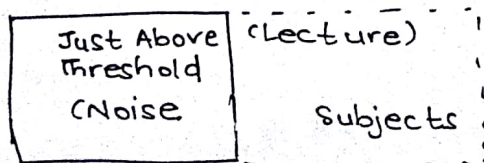 Just Above
Threshold
(Noise
(Lecture)
Subjects